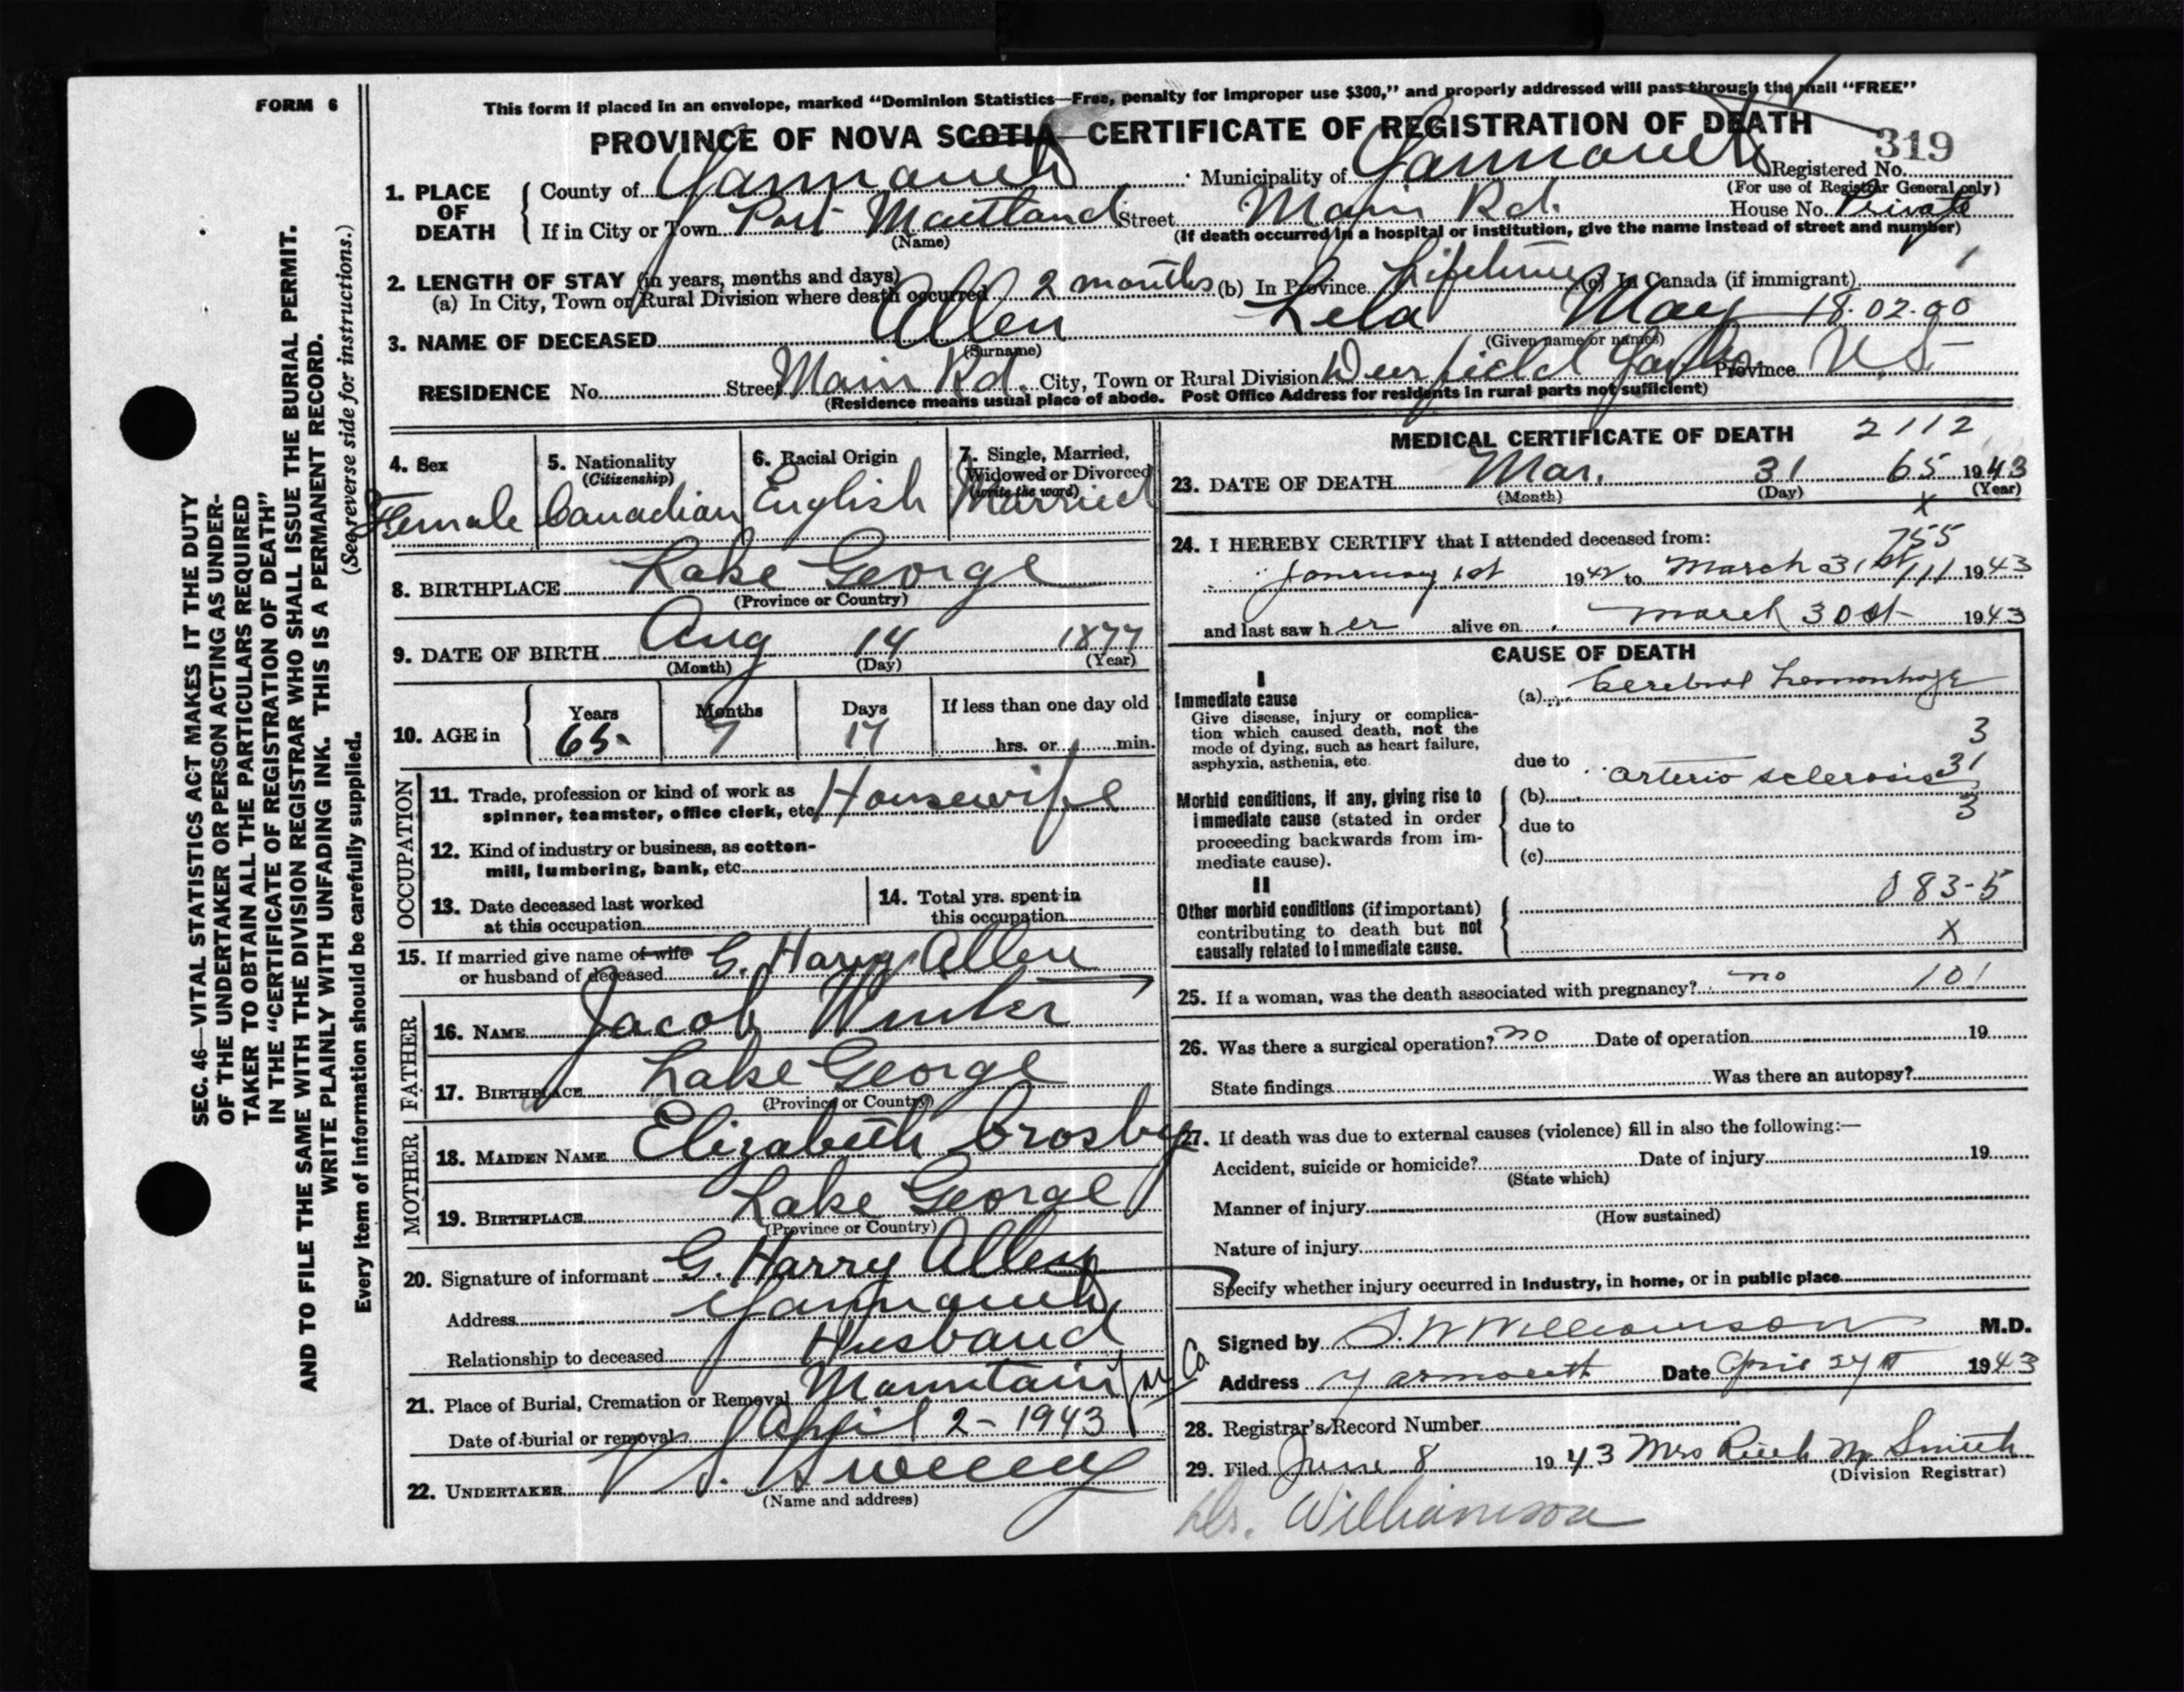 FORM 6
This form if placed in an envelope, marked "Dominion Statistics—Free, penalty for improper use $300," and properly addressed will pass through the mail "FREE"
PROVINCE OF NOVA SCOTIA—CERTIFICATE OF REGISTRATION OF DEATH
319
1. PLACE OF DEATH County of Yarmouth Municipality of Yarmouth Registered No.
(For use of Registrar General only)
If in City or Town Port Maitland Street Main Rd. House No. Private
(Name) (If death occurred in a hospital or institution, give the name instead of street and number)
2. LENGTH OF STAY (in years, months and days)
(a) In City, Town or Rural Division where death occurred 2 months (b) In Province Lifetime (c) In Canada (if immigrant)
3. NAME OF DECEASED Allen Lela May 18.02.00
(Surname) (Given name or names)
RESIDENCE No. Street Main Rd. City, Town or Rural Division Deerfield Province N.S.
(Residence means usual place of abode. Post Office Address for residents in rural parts not sufficient)
SEC. 46—VITAL STATISTICS ACT MAKES IT THE DUTY
OF THE UNDERTAKER OR PERSON ACTING AS UNDER-
TAKER TO OBTAIN ALL THE PARTICULARS REQUIRED
IN THE "CERTIFICATE OF REGISTRATION OF DEATH"
AND TO FILE THE SAME WITH THE DIVISION REGISTRAR WHO SHALL ISSUE THE BURIAL PERMIT.
WRITE PLAINLY WITH UNFADING INK. THIS IS A PERMANENT RECORD.
(See reverse side for instructions.)
Every item of information should be carefully supplied.
4. Sex Female
5. Nationality (Citizenship) Canadian
6. Racial Origin English
7. Single, Married, Widowed or Divorced (write the word) Married
8. BIRTHPLACE Lake George
(Province or Country)
9. DATE OF BIRTH Aug 14 1877
(Month) (Day) (Year)
10. AGE in Years 65 Months 7 Days 17 If less than one day old
hrs. or min.
OCCUPATION
11. Trade, profession or kind of work as
spinner, teamster, office clerk, etc. Housewife
12. Kind of industry or business, as cotton-
mill, lumbering, bank, etc.
13. Date deceased last worked
at this occupation
14. Total yrs. spent in
this occupation
15. If married give name of wife
or husband of deceased G. Harry Allen
FATHER
16. NAME Jacob Winter
17. BIRTHPLACE Lake George
(Province or Country)
MOTHER
18. MAIDEN NAME Elizabeth Crosby
19. BIRTHPLACE Lake George
(Province or Country)
20. Signature of informant G. Harry Allen
Address Yarmouth
Relationship to deceased Husband
21. Place of Burial, Cremation or Removal Mountain
Date of burial or removal April 2-1943
22. UNDERTAKER V. S. Sweeny
(Name and address)
MEDICAL CERTIFICATE OF DEATH 2112
23. DATE OF DEATH Mar. 31 65 1943
(Month) (Day) (Year)
x
24. I HEREBY CERTIFY that I attended deceased from:
755
January 1st 1942 to March 31st 111 1943
and last saw her alive on March 30st 1943
CAUSE OF DEATH
I
Immediate cause
Give disease, injury or complica-
tion which caused death, not the
mode of dying, such as heart failure,
asphyxia, asthenia, etc.
(a) Cerebral hemorrhage
3
due to
31
Morbid conditions, if any, giving rise to
immediate cause (stated in order
proceeding backwards from im-
mediate cause).
(b) arterio sclerosis
3
due to
(c)
II
Other morbid conditions (if important)
contributing to death but not
causally related to immediate cause.
083-5
X
25. If a woman, was the death associated with pregnancy? no 101
26. Was there a surgical operation? no Date of operation 19
State findings Was there an autopsy?
27. If death was due to external causes (violence) fill in also the following:—
Accident, suicide or homicide? Date of injury 19
(State which)
Manner of injury
(How sustained)
Nature of injury
Specify whether injury occurred in industry, in home, or in public place
Signed by S. W Williamson M.D.
Address Yarmouth Date April 27th 1943
28. Registrar's Record Number
29. Filed June 8 1943 Mrs Ruth M. Smith
(Division Registrar)
Dr. Williamson